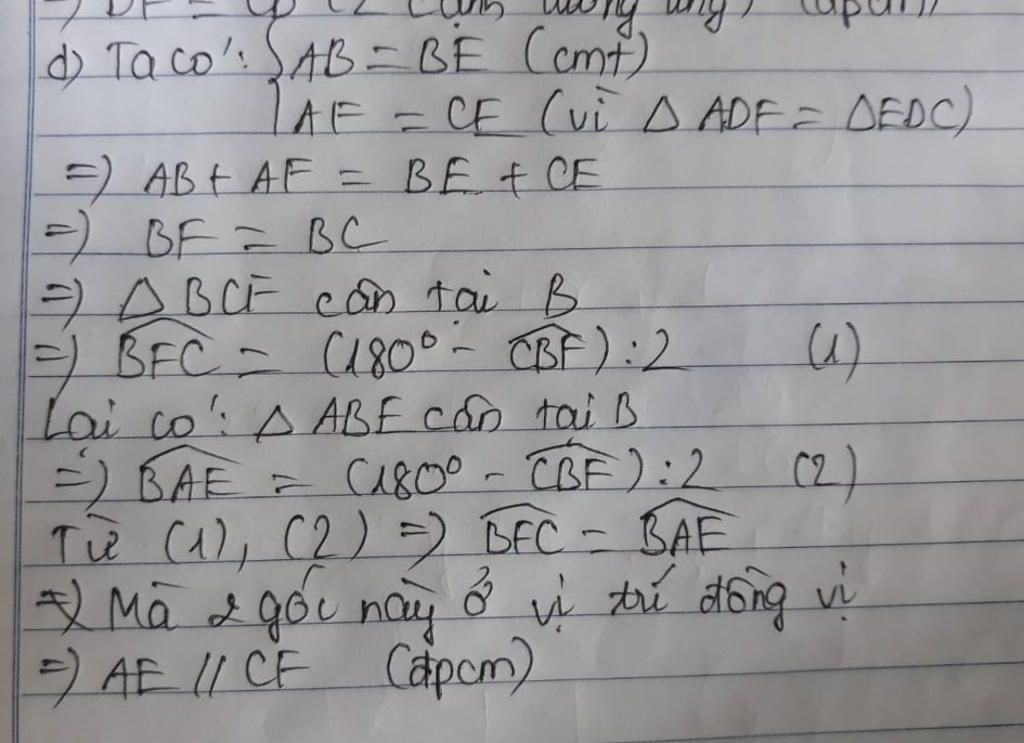 =) DF = CD (2 cạnh tương ứng) (đpcm)
d) Ta có: { AB = BE (cmt)
AF = CE (vì △ ADF = △EDC)
=) AB + AF = BE + CE
=) BF = BC
=) △ BCF cân tại B
=) BFC = (180° - CBF) : 2 (1)
Lại có: △ ABE cân tại B
=) BAE = (180° - CBF) : 2 (2)
Từ (1), (2) =) BFC = BAE
=) Mà 2 góc này ở vị trí đồng vị
=) AE // CF (đpcm)